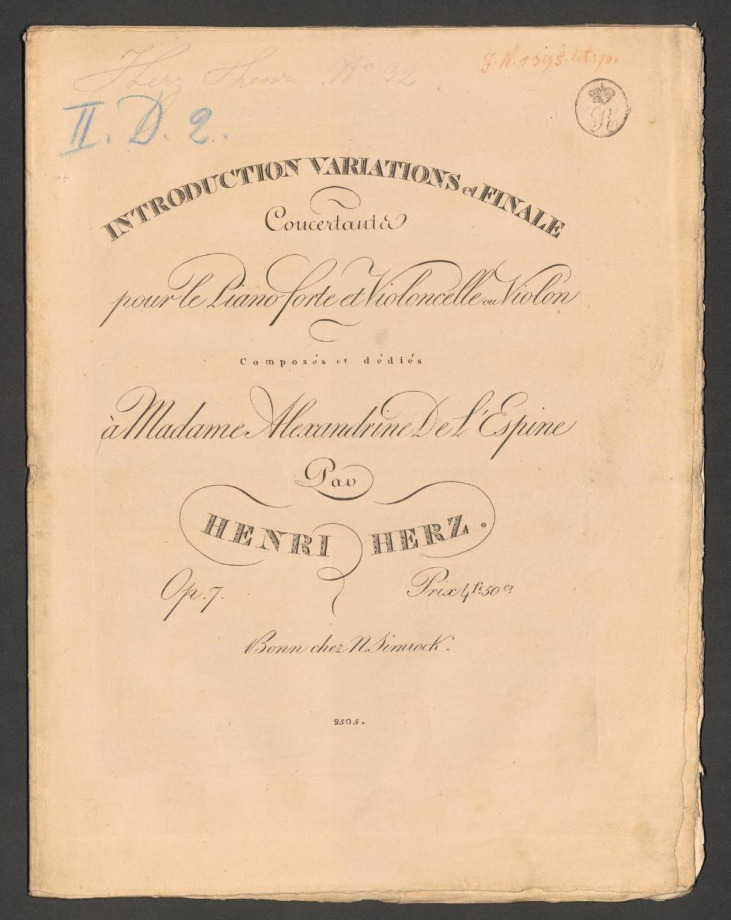 Herz Henri No 32
II. D. 2.
R
INTRODUCTION VARIATIONS et FINALE
Concertants
pour le Piano forte et Violoncelle ou Violon
Composés et dédiés
à Madame Alexandrine De L'Espine
Par
HENRI HERZ.
Op. 7.
Prix 4 fr. 50 ct
Bonn chez N. Simrock.
2505.